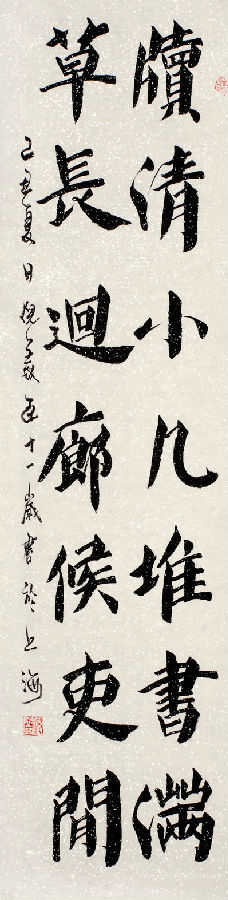 牘清小几堆書滿
草長迴廊候吏閒
己丑夏日倪子〻五十一歲書於上海